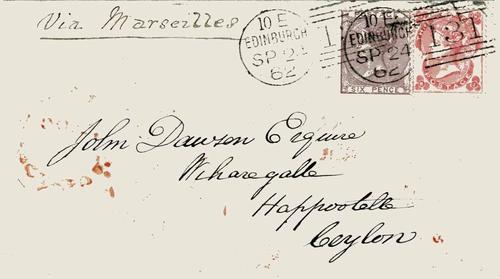 Via Marseilles
10 E
EDINBURGH
SP 24
62
10 E
EDINBURGH
SP 24
62
131
SIX PENCE
John Dawson Esquire
Wiharegalle
Happootelle
Ceylon